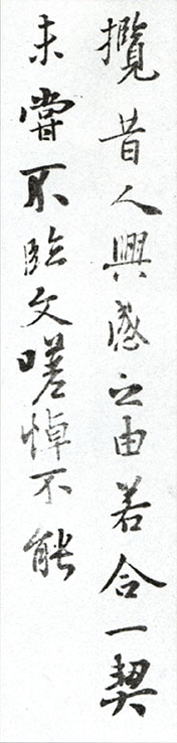 攬昔人興感之由若合一契
未嘗不臨文嗟悼不能